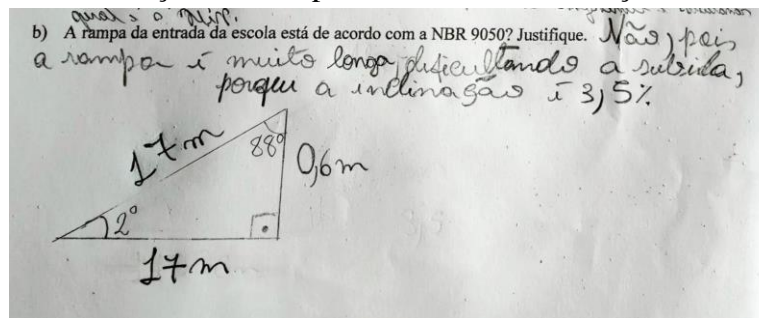 geral, o
b) A rampa da entrada da escola está de acordo com a NBR 9050? Justifique. Não, pois
a rampa é muito longa, dificultando a subida,
porque a inclinação é 3,5%
17m
88°
0,6m
2°
17m